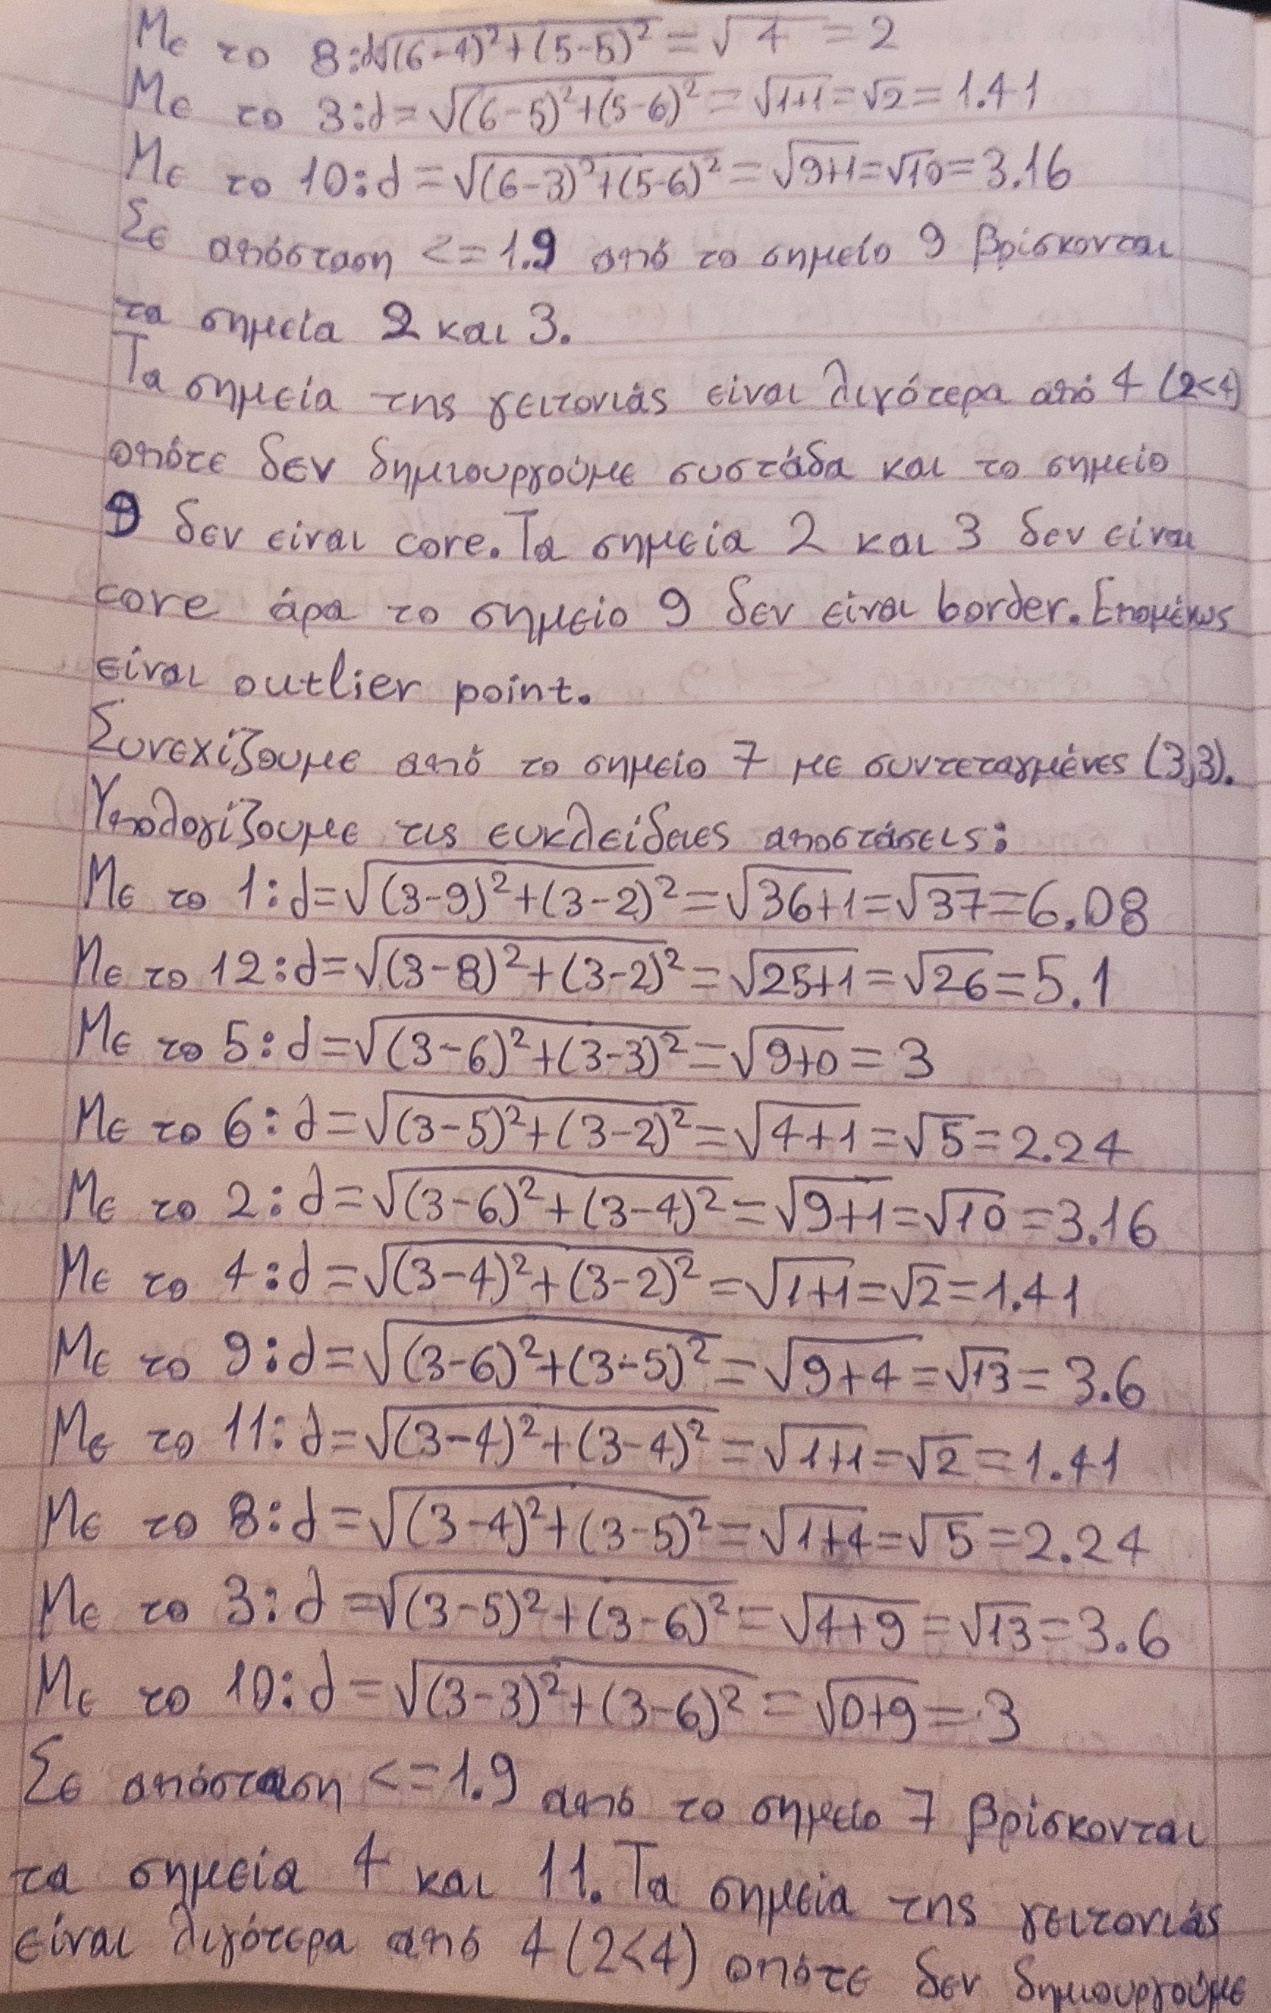 Με το 8:d√(6-4)²+(5-5)² = √4 = 2
Με το 3:d=√(6-5)²+(5-6)² = √1+1=√2=1.41
Με το 10:d=√(6-3)²+(5-6)² = √9+1=√10=3.16
Σε απόσταση <=1.9 από το σημείο 9 βρίσκονται
τα σημεία 2 και 3.
Τα σημεία της γειτονιάς είναι λιγότερα από 4 (2<4)
οπότε δεν δημιουργούμε συστάδα και το σημείο
9 δεν είναι core. Τα σημεία 2 και 3 δεν είναι
core άρα το σημείο 9 δεν είναι border. Επομένως
είναι outlier point.
Συνεχίζουμε από το σημείο 7 με συντεταγμένες (3,3).
Υπολογίζουμε τις ευκλείδειες αποστάσεις:
Με το 1:d=√(3-9)²+(3-2)²=√36+1=√37=6.08
Με το 12:d=√(3-8)²+(3-2)²=√25+1=√26=5.1
Με το 5:d=√(3-6)²+(3-3)²=√9+0=3
Με το 6:d=√(3-5)²+(3-2)²=√4+1=√5=2.24
Με το 2:d=√(3-6)²+(3-4)²=√9+1=√10=3.16
Με το 4:d=√(3-4)²+(3-2)²=√1+1=√2=1.41
Με το 9:d=√(3-6)²+(3-5)²=√9+4=√13=3.6
Με το 11:d=√(3-4)²+(3-4)²=√1+1=√2=1.41
Με το 8:d=√(3-4)²+(3-5)²=√1+4=√5=2.24
Με το 3:d=√(3-5)²+(3-6)²=√4+9=√13=3.6
Με το 10:d=√(3-3)²+(3-6)²=√0+9=3
Σε απόσταση <=1.9 από το σημείο 7 βρίσκονται
τα σημεία 4 και 11. Τα σημεία της γειτονιάς
είναι λιγότερα από 4 (2<4) οπότε δεν δημιουργούμε